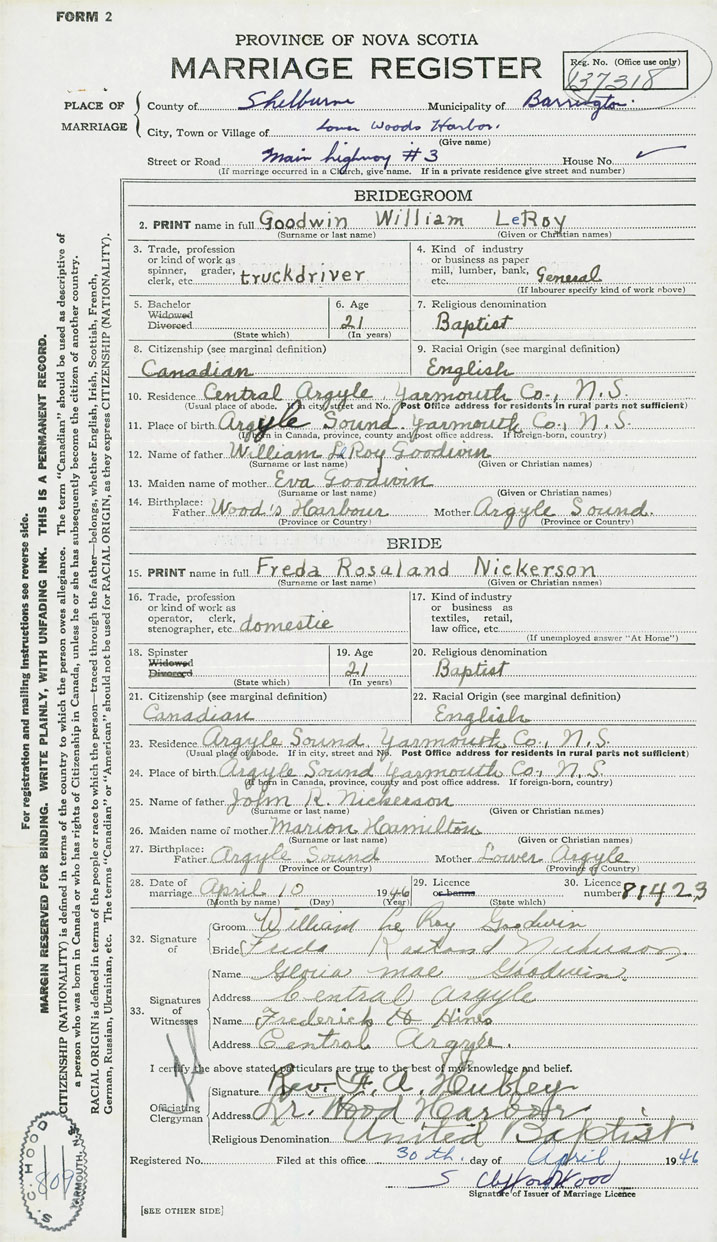 FORM 2
PROVINCE OF NOVA SCOTIA
MARRIAGE REGISTER
Reg. No. (Office use only)
137318
PLACE OF MARRIAGE
County of Shelburne Municipality of Barrington.
City, Town or Village of Lower Woods Harbor.
(Give name)
Street or Road Main highway #3 House No. ✓
(If marriage occurred in a Church, give name. If in a private residence give street and number)
BRIDEGROOM
2. PRINT name in full Goodwin William LeRoy
(Surname or last name) (Given or Christian names)
3. Trade, profession or kind of work as spinner, grader, clerk, etc. truckdriver
4. Kind of industry or business as paper mill, lumber, bank, etc. General
(If labourer specify kind of work above)
5. Bachelor Widowed Divorced (State which)
6. Age 21 (In years)
7. Religious denomination Baptist
8. Citizenship (see marginal definition) Canadian
9. Racial Origin (see marginal definition) English
10. Residence Central Argyle, Yarmouth Co., N.S.
(Usual place of abode. If in city, street and No. Post Office address for residents in rural parts not sufficient)
11. Place of birth Argyle Sound. Yarmouth Co., N.S.
(If born in Canada, province, county and post office address. If foreign-born, country)
12. Name of father William LeRoy Goodwin
(Surname or last name) (Given or Christian names)
13. Maiden name of mother Eva Goodwin
(Surname or last name) (Given or Christian names)
14. Birthplace: Father Wood's Harbour Mother Argyle Sound.
(Province or Country) (Province or Country)
BRIDE
15. PRINT name in full Freda Rosaland Nickerson
(Surname or last name) (Given or Christian names)
16. Trade, profession or kind of work as operator, clerk, stenographer, etc. domestic
17. Kind of industry or business as textiles, retail, law office, etc.
(If unemployed answer "At Home")
18. Spinster Widowed Divorced (State which)
19. Age 21 (In years)
20. Religious denomination Baptist
21. Citizenship (see marginal definition) Canadian
22. Racial Origin (see marginal definition) English
23. Residence Argyle Sound, Yarmouth Co., N.S.
(Usual place of abode. If in city, street and No. Post Office address for residents in rural parts not sufficient)
24. Place of birth Argyle Sound Yarmouth Co., N.S.
(If born in Canada, province, county and post office address. If foreign-born, country)
25. Name of father John R. Nickerson
(Surname or last name) (Given or Christian names)
26. Maiden name of mother Marion Hamilton
(Surname or last name) (Given or Christian names)
27. Birthplace: Father Argyle Sound Mother Lower Argyle
(Province or Country) (Province or Country)
28. Date of marriage April 10 1946
(Month by name) (Day) (Year)
29. Licence or banns (State which)
30. Licence number 81423
32. Signature of
Groom William Le Roy Goodwin
Bride Freda Nickerson
33. Signatures of Witnesses
Name Gloria mae Goodwin.
Address Central Argyle
Name Frederick H Hines
Address Central Argyle.
I certify the above stated particulars are true to the best of my knowledge and belief.
Officiating Clergyman
Signature Rev. F. A. Hubley
Address Lr. Wood Harbor
Religious Denomination United Baptist
Registered No. Filed at this office 30th. day of April 1946
S Clifford Hood
Signature of Issuer of Marriage Licence
[SEE OTHER SIDE]
For registration and mailing instructions see reverse side.
MARGIN RESERVED FOR BINDING. WRITE PLAINLY, WITH UNFADING INK. THIS IS A PERMANENT RECORD.
CITIZENSHIP (NATIONALITY) is defined in terms of the country to which the person owes allegiance. The term "Canadian" should be used as descriptive of
a person who was born in Canada or who has rights of Citizenship in Canada, unless he or she has subsequently become the citizen of another country.
RACIAL ORIGIN is defined in terms of the people or race to which the person—traced through the father—belongs, whether English, Irish, Scottish, French,
German, Russian, Ukrainian, etc. The terms "Canadian" or "American" should not be used for RACIAL ORIGIN, as they express CITIZENSHIP (NATIONALITY).
S. C. HOOD
809
YARMOUTH, N.S.